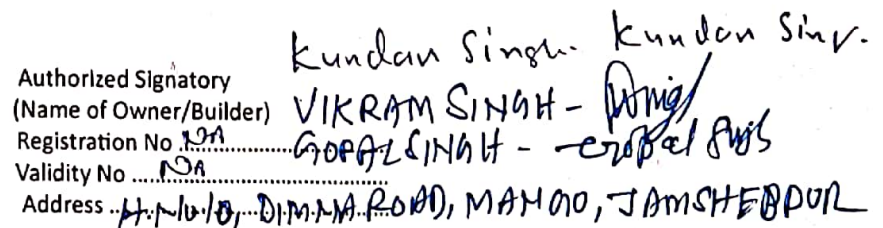 Kundan Singh. Kundan Sing.
Authorized Signatory
(Name of Owner/Builder) VIKRAM SINGH -
Registration No NA GOPAL SINGH - Gopal Singh
Validity No NA
Address H.No 10, DIMNA ROAD, MANGO, JAMSHEDPUR